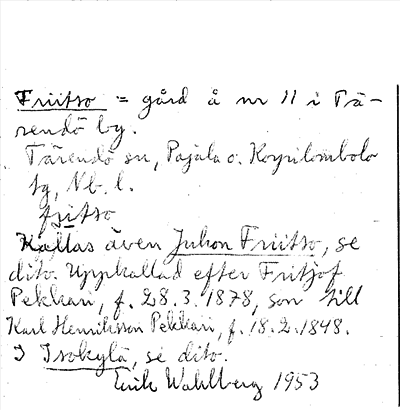 Friitso = gård å nr 11 i Tä-
rendö by.
Tärendö sn, Pajala o. Korpilombolo
tg, Nb. l.
fritso
Kallas även Juhon Friitso, se
dito. Uppkallad efter Fritjof
Pekkari, f. 28.3.1878, son till
Karl Henriksson Pekkari, f. 18.2.1848.
I Isokylä, se dito.
Erik Wahlberg 1953